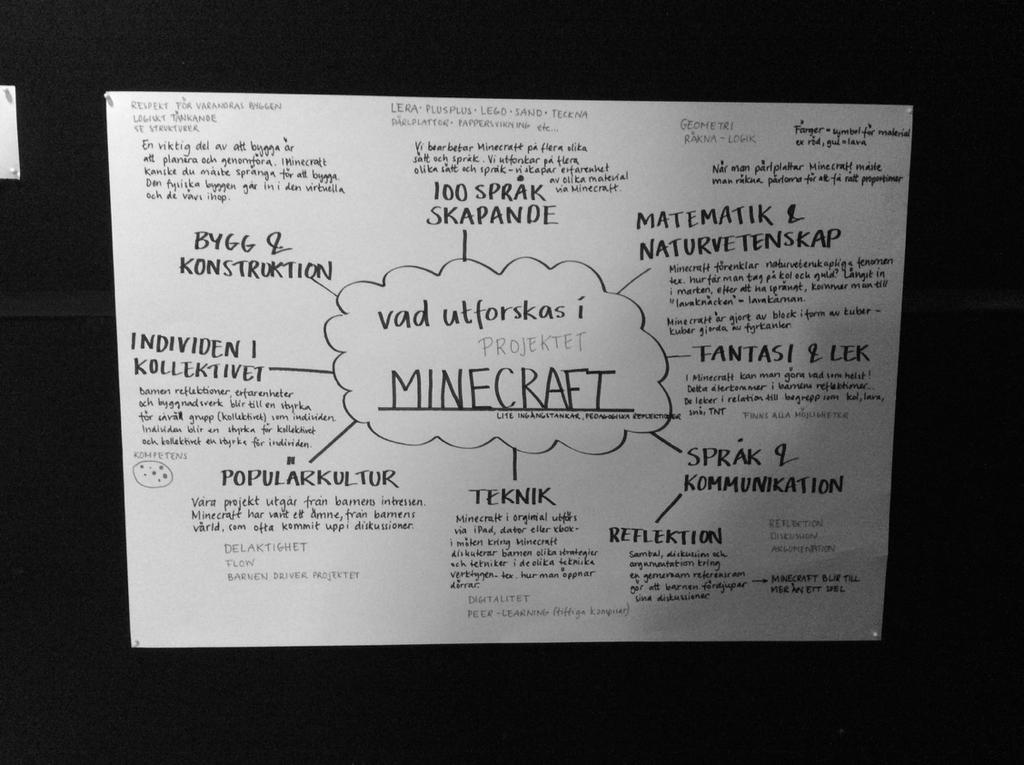 RESPEKT FÖR VARANDRAS BYGGEN
LOGISKT TÄNKANDE
SE STRUKTURER
En viktig del av att bygga är
att planera och genomföra. I Minecraft
kanske du måste spränga för att bygga.
Den fysiska byggen går in i den virtuella
och de vävs ihop.
BYGG &
KONSTRUKTION
LERA · PLUSPLUS · LEGO · SAND · TECKNA
PÄRLPLATTOR · PAPPERSVIKNING etc...
Vi bearbetar Minecraft på flera olika
sätt och språk. Vi utforskar på flera
olika sätt och språk - vi skapar erfarenhet
av olika material
via Minecraft.
100 SPRÅK
SKAPANDE
GEOMETRI
RÄKNA - LOGIK
Färger = symbol för material
ex röd, gul = lava
När man pärlplattar Minecraft måste
man räkna pärlorna för att få rätt proportioner
MATEMATIK &
NATURVETENSKAP
Minecraft förenklar naturvetenskapliga fenomen
tex. hur får man tag på kol och guld? Långst in
i marken, efter att ha sprängt, kommer man till
"lavaknäcken" = lavakärnan.
Minecraft är gjort av block i form av kuber -
kuber gjorda av fyrkanter.
vad utforskas i
PROJEKTET
MINECRAFT
LITE INGÅNGSTANKAR, PEDAGOGISKA REFLEKTIONER
INDIVIDEN I
KOLLEKTIVET
Barnen reflektioner, erfarenheter
och byggnadsverk blir till en styrka
för såväl grupp (kollektivet) som individen.
Individen blir en styrka för kollektivet
och kollektivet en styrka för individen.
KOMPETENS
FANTASI & LEK
I Minecraft kan man göra vad som helst!
Detta återkommer i barnens reflektioner...
De leker i relation till begrepp som kol, lava,
snö, TNT
FINNS ALLA MÖJLIGHETER
POPULÄRKULTUR
Våra projekt utgår från barnens intressen.
Minecraft har varit ett ämne, från barnens
värld, som ofta kommit upp i diskussioner.
DELAKTIGHET
FLOW
BARNEN DRIVER PROJEKTET
TEKNIK
Minecraft i orginial utförs
via iPad, dator eller xbox -
i möten kring Minecraft
diskuterar barnen olika strategier
och tekniker i de olika tekniska
verktygen - tex. hur man öppnar
dörrar.
DIGITALITET
PEER-LEARNING (tittiga kompisar)
SPRÅK &
KOMMUNIKATION
REFLEKTION
DISKUSSION
ARGUMENATION
REFLEKTION
Samtal, diskussion och
argumentation kring
en gemensam referensram
gör att barnen fördjupar
sina diskussioner
→ MINECRAFT BLIR TILL
MER ÄN ETT SPEL